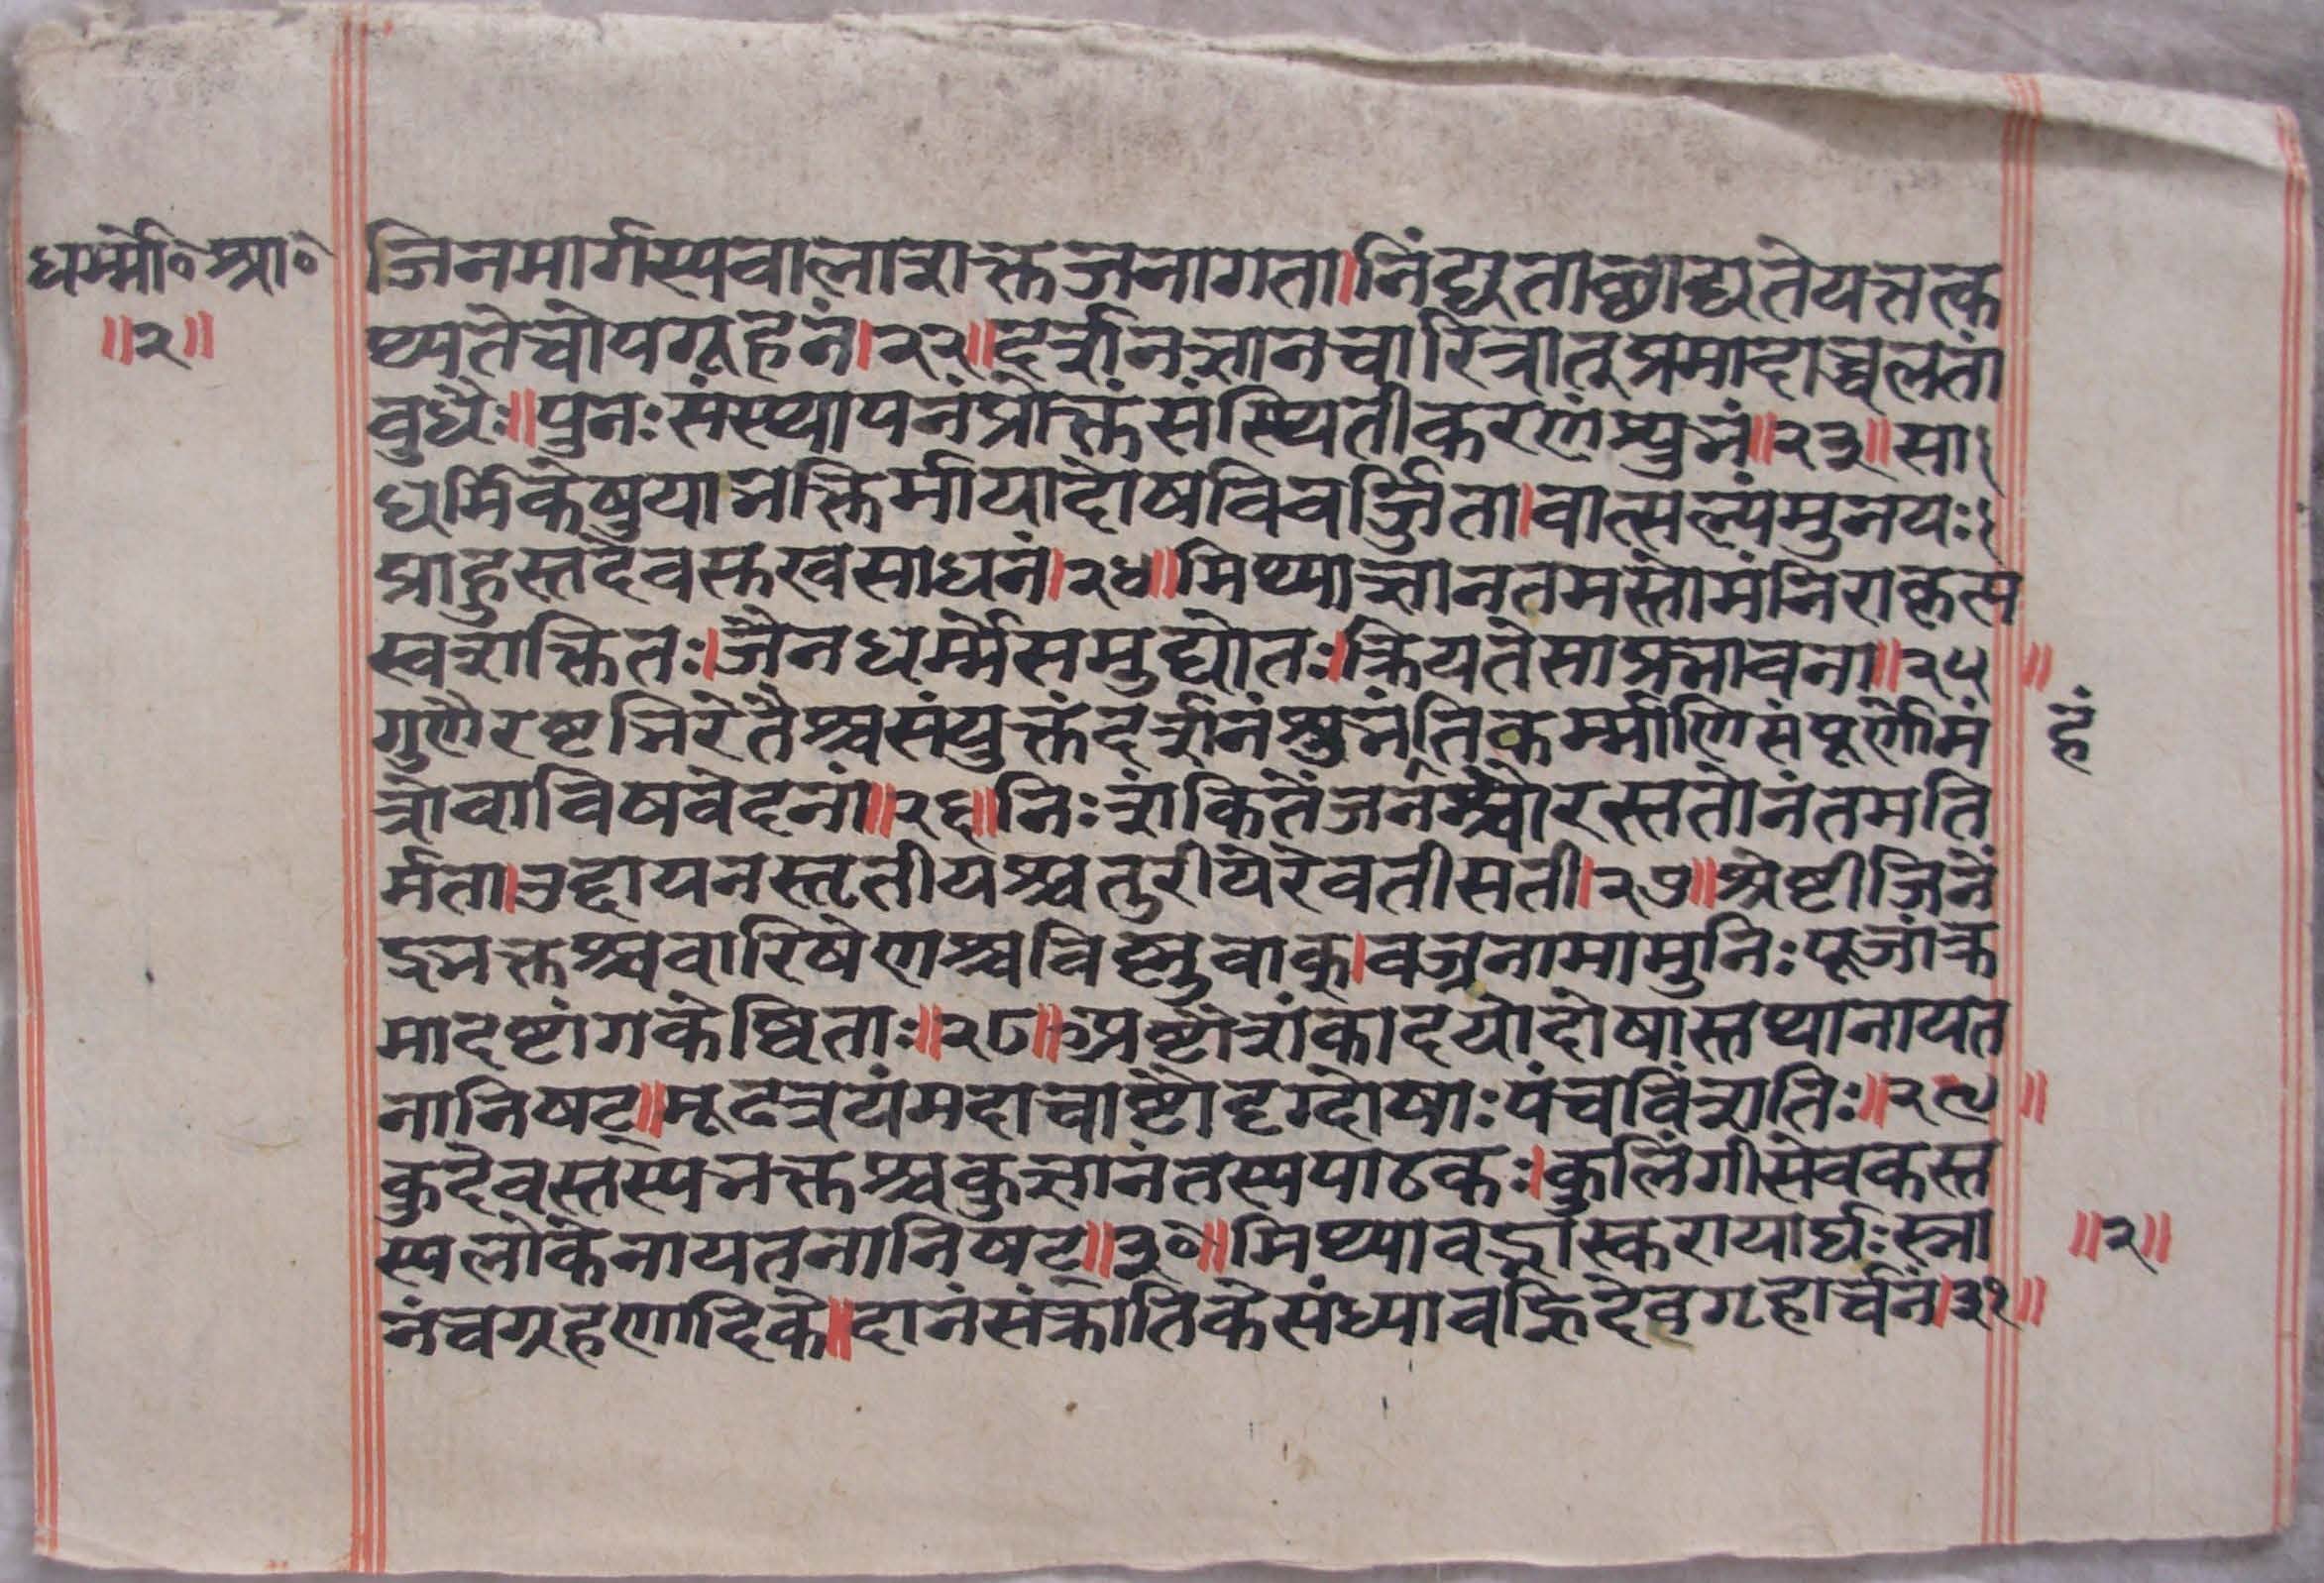 धर्म्मो॰श्रा॰
॥२॥
जिनमार्गस्यवालाशक्तजनागता।निंद्यताछाद्यतेयत्तत्क
थ्यतेचोपगूहनं।२२॥दर्शनज्ञानचारित्रात्प्रमादाच्चलतां
वुधैः॥पुनःसंस्थापनंप्रोक्तंसंस्थितीकरणंश्रुभं॥२३॥सा
धर्मिकेषुयाभक्तिर्मायादोषविवर्जिता।वात्सल्यंमुनयः
प्राहुस्तदेवस्तखसाधनं।२४॥मिथ्याज्ञानतमस्तोमंनिराकृत्य
स्वशक्तितः।जैनधर्म्मेसमुद्योतःक्रियतेसाप्रभावना॥२५॥
गुणैरष्टभिरेतैश्चसंयुक्तंदर्शनंश्रुभंतिकर्म्माणिसंपूर्णोमं
हं
त्रोवाविषवेदनां॥२६॥निःशंकितेंजनश्चोरस्ततोनंतमति
र्मता।उद्दायनस्तृतीयश्चतुरीयेरेवतीसती।२७॥श्रेष्टीजिनें
द्रभक्तश्चवारिषेणश्चविष्णुवाक्।वज्रनामामुनिःपूजांक्र
मादष्टांगकेष्विताः॥२८॥अष्टौशंकादयोदोषास्तथानायत
नानिषट्॥मूढत्रयंमदाचाष्टौदृग्दोषाःपंचविंशतिः॥२९॥
कुदेवस्तस्यभक्तश्चकुज्ञानंतस्यपाठकः।कुलिंगीसेवकस्त
स्यलोकेनायतनानिषट्॥३०॥मिथ्यावद्भास्करायार्घःस्ना
॥२॥
नंचग्रहणादिके॥दानंसंक्रांतिकेसंध्यावह्निदेवगृहार्चनं।३१॥